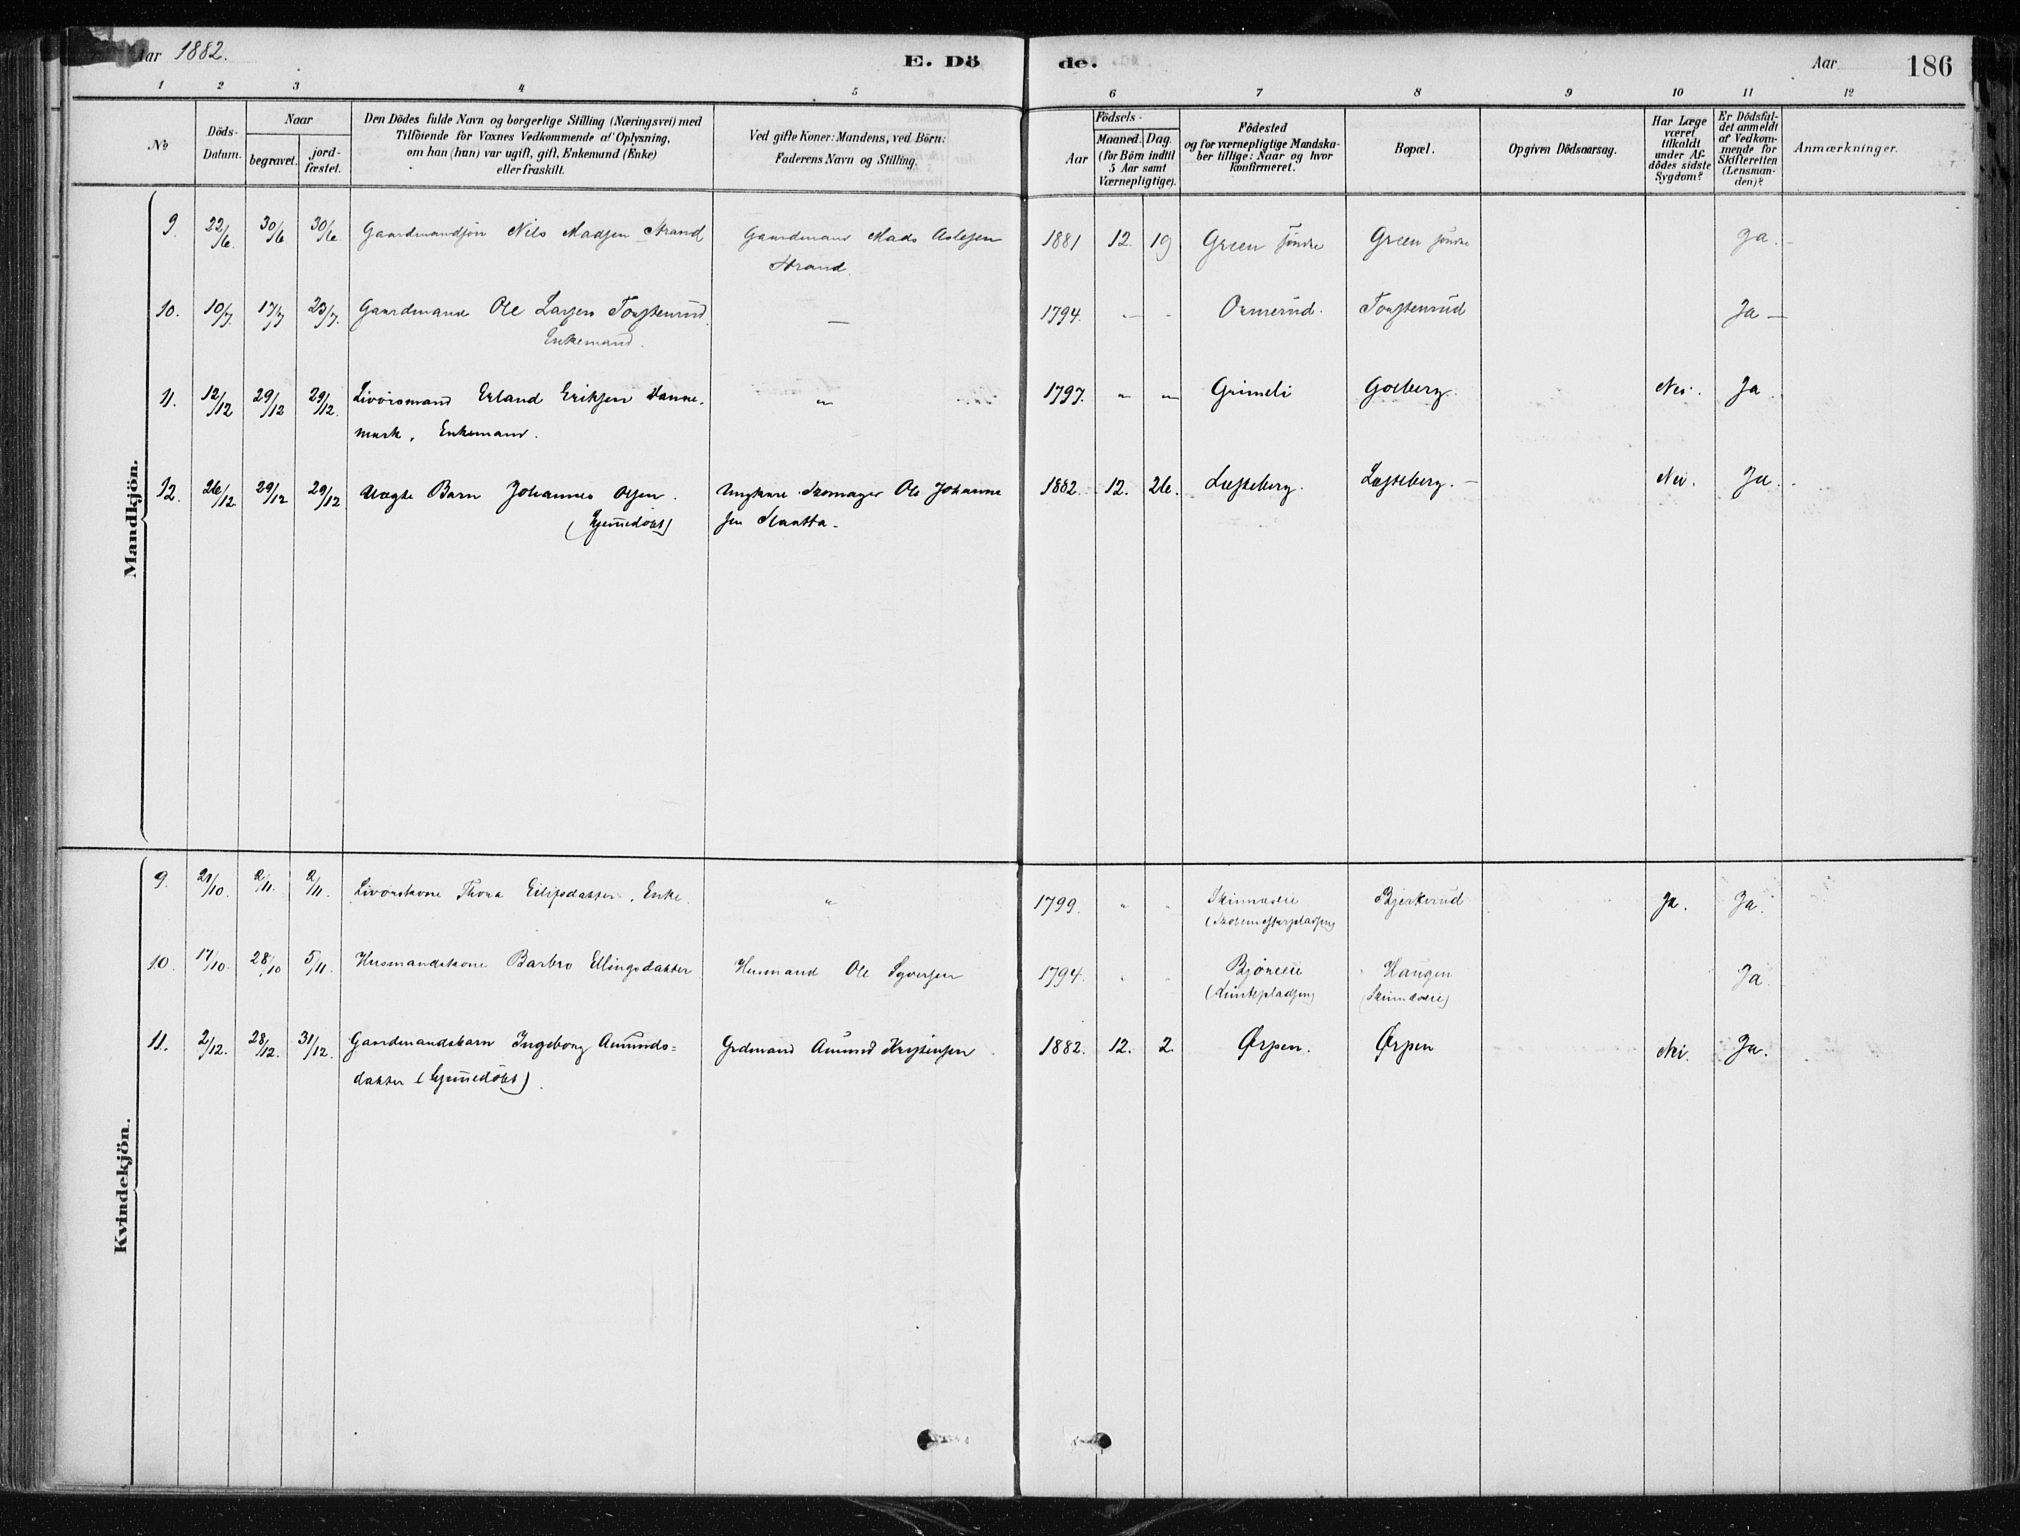 Aar 1882.
E. Dö
de.
Aar
186
1 2 3 4 5 6 7 8 9 10 11 12
№
Döds-
Datum.
Naar
begravet.
jord-
fæstet.
Den Dödes fulde Navn og borgerlige Stilling (Næringsvei) med
Tilföiende for Voxnes Vedkommende af Oplysning,
om han (hun) var ugift, gift, Enkemand (Enke)
eller fraskilt.
Ved gifte Koner: Mandens, ved Börn:
Faderens Navn og Stilling.
Födsels-
Aar
Maaned. Dag.
(for Börn indtil
5 Aar samt
Værnepligtige).
Födested
og for værnepligtige Mandska-
ber tillige: Naar og hvor
konfirmeret.
Bopæl.
Opgiven Dödsaarsag.
Har Læge
været
tilkaldt
under Af-
dödes sidste
Sygdom?
Er Dödsfal-
det anmeldt
af Vedkom-
mende for
Skifteretten
(Lensman-
den)?
Anmærkninger.
Mandkjön.
9. 22/6. 30/6 30/6. Gaardmandsön Nils Madsen Strand Gaardmand Mads Aslesen 1881 12. 19 Green söndre Green söndre Ja. –
Strand.
10. 10/7. 17/7 23/7. Gaardmand Ole Larsen Torstenrud. — 1794. – - Ormerud. Torstenrud Ja —
Enkemand.
11. 12/12 29/12 29/12. Livörsmand Erland Eriksen Danne- " 1797. " " Grimeli Golberg. Nei. Ja.
mark, Enkemand.
12. 26/12. 29/12 29/12 Uægte Barn Johannes Olsen. Ungkarl Skomager Ole Johanne 1882. 12. 26. Lofteberg. Lofteberg. – Nei. Ja.
(hjemmedöbt) sen Slaatta.
Kvindekjön.
9. 21/10. 2/11. 2/11. Livörskone Thora Eilifsdatter, Enke. " 1799. " " Skinnæseie Bjerkerud Ja. Ja.
10. 17/10. 28/10 5/11. Husmandskone Barbro Ellingsdatter Husmand Ole Syversen 1794. " " Björeeie Haugen Ja.
11. 2/12. 28/12. 31/12. Gaardmandsbarn Ingeborg Amunds- Grdmand Amund Kristensen 1882. 12. 2. Ørpen. Ørpen Nei. Ja.
datter (hjemmedöbt).